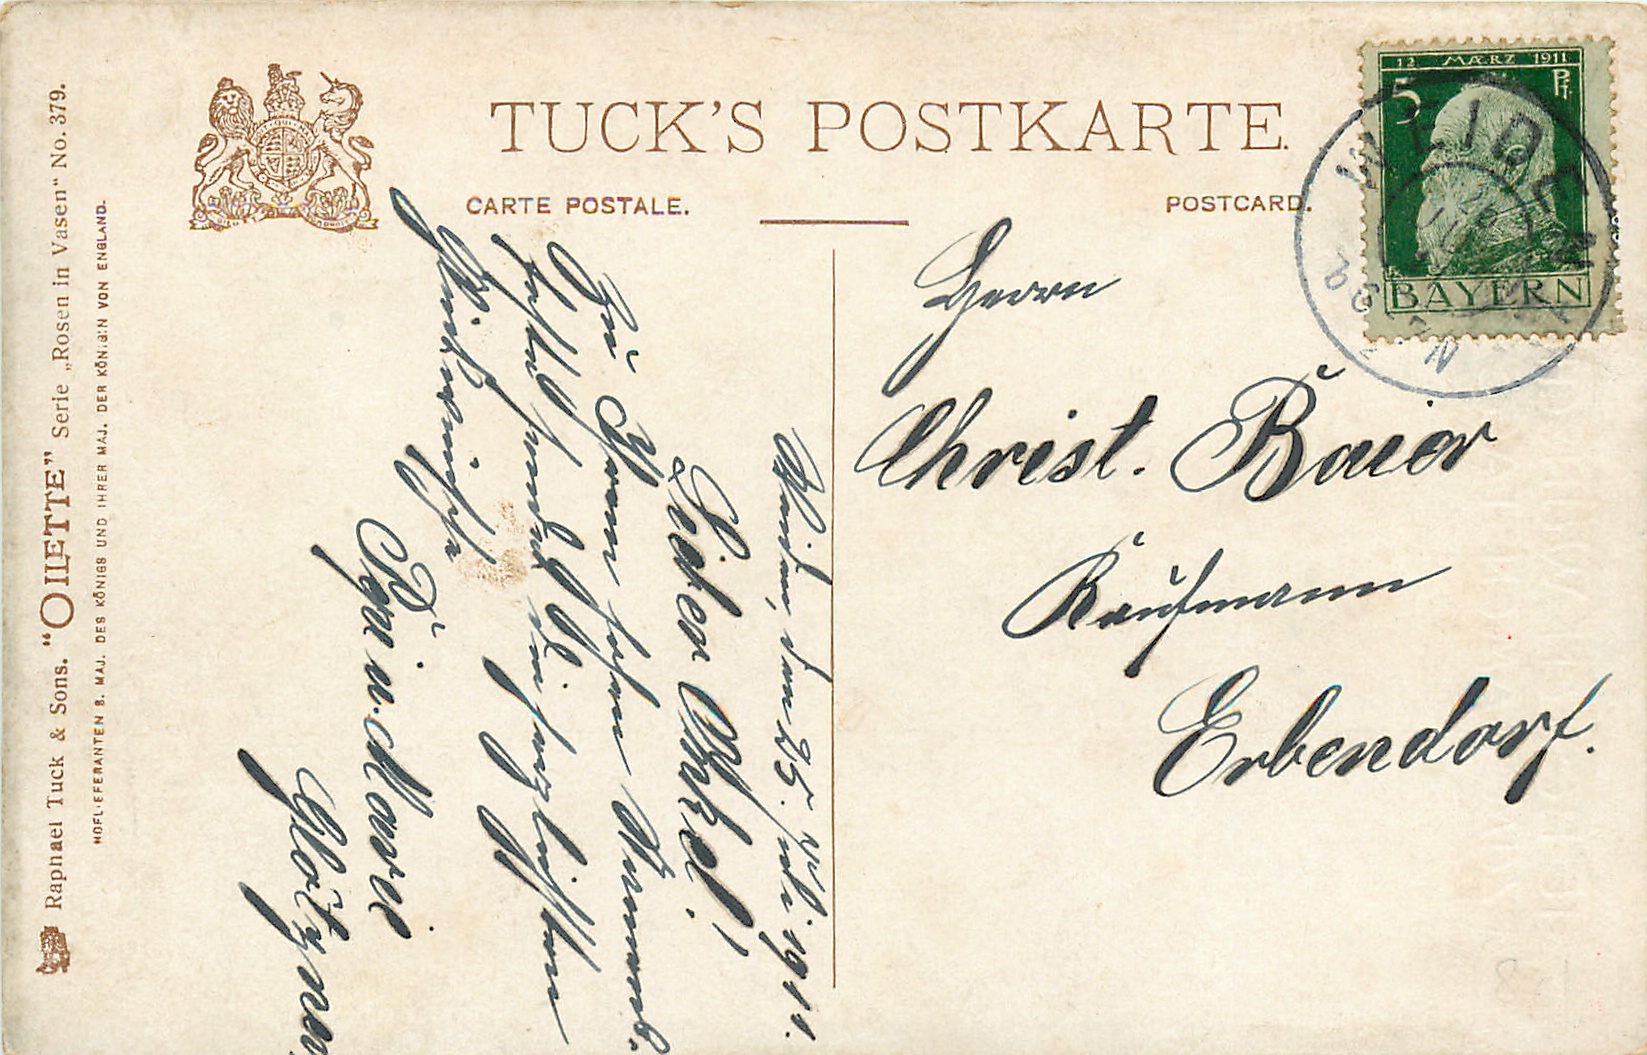 TUCK'S POSTKARTE.
CARTE POSTALE.
POSTCARD.
Raphael Tuck & Sons. "OILETTE" Serie „Rosen in Vasen" No. 379.
HOFLIEFERANTEN S. MAJ. DES KÖNIGS UND IHRER MAJ. DER KÖNIGIN VON ENGLAND.
12 MÆRZ 1911
5 Pf
BAYERN
WEIDEN
Weiden, den 25. Juli 1911.
Lieber Onkel!
Zu Ihrem hohen Namens-
feste sendet die herzlichsten
Glückwünsche
Peppi u. Marie
Herrn
Christ. Baier
Kaufmann
Erbendorf.